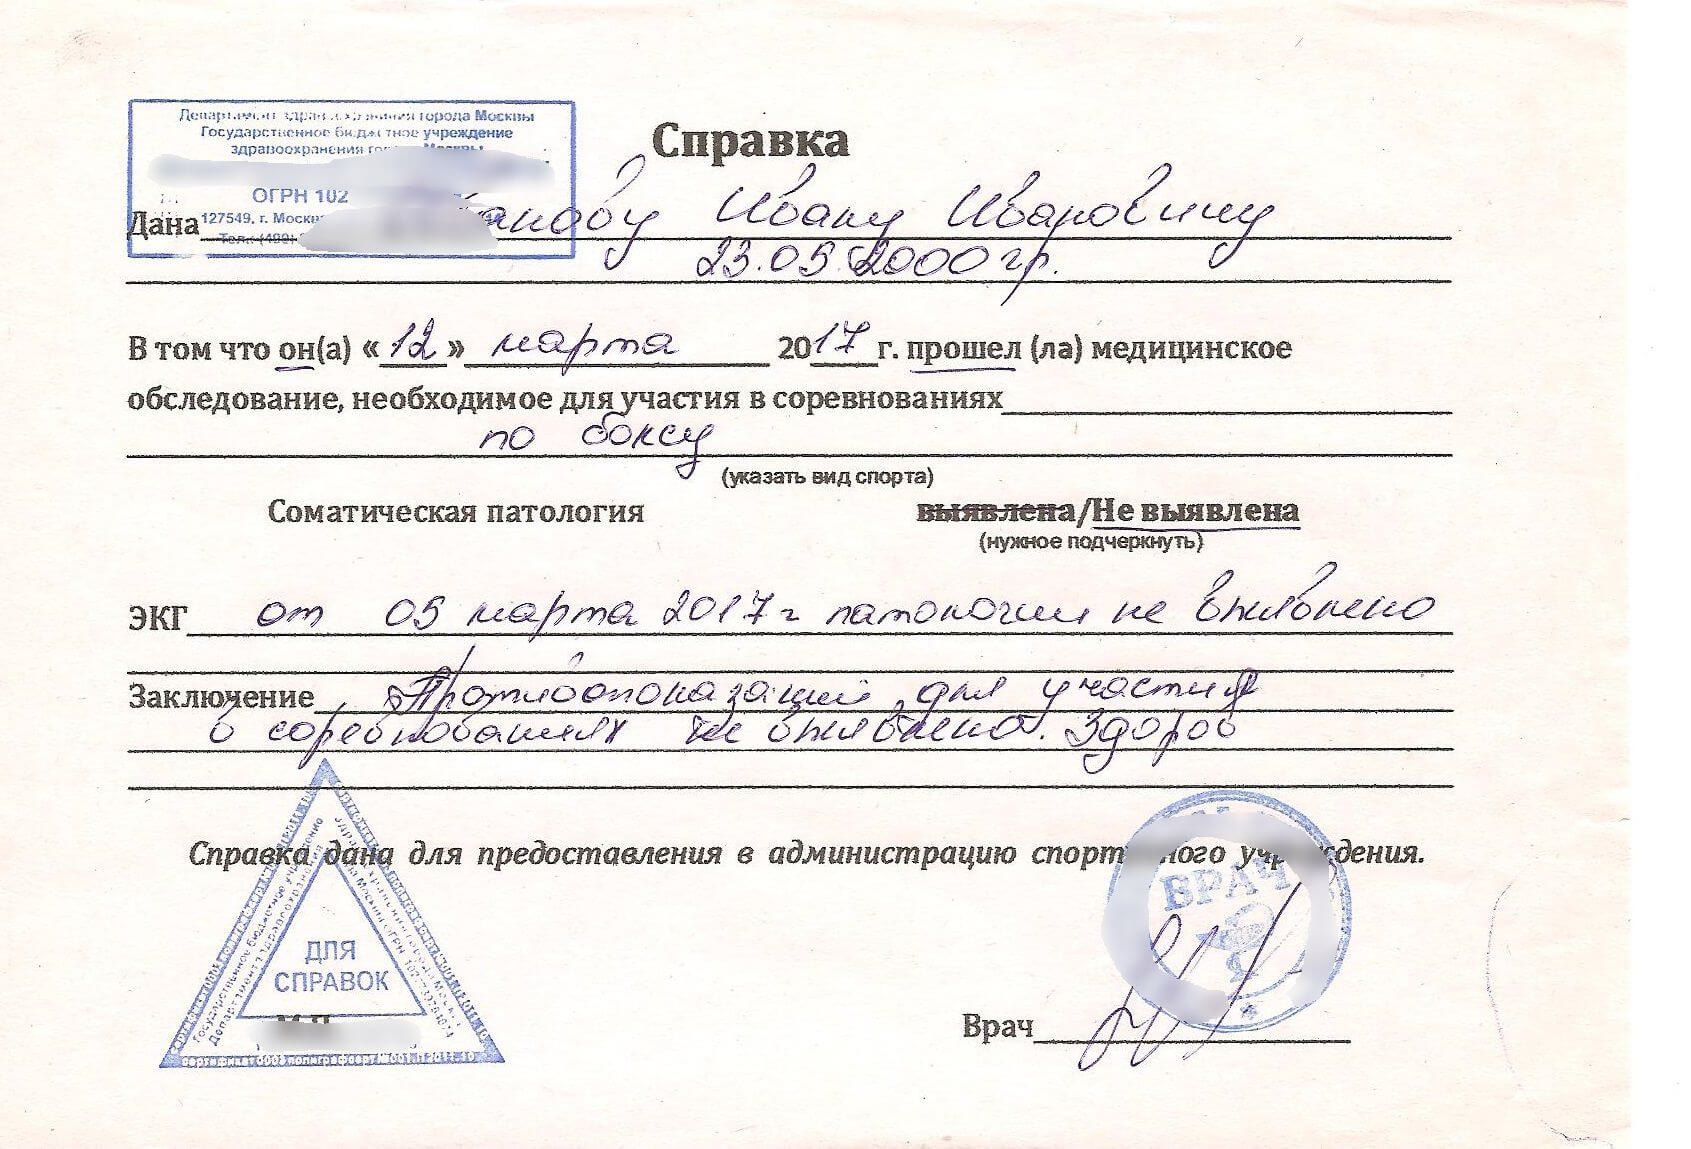 Департамент здравоохранения города Москвы
Государственное бюджетное учреждение
здравоохранения города Москвы
ОГРН 102
127549, г. Москва
Тел.: (499)
Справка
Дана Ивану Ивановичу
23.05.2000 гр.
В том что он(а) «12» марта 2017 г. прошел (ла) медицинское
обследование, необходимое для участия в соревнованиях
по боксу
(указать вид спорта)
Соматическая патология выявлена/Не выявлена
(нужное подчеркнуть)
ЭКГ от 05 марта 2017 г патологии не выявлено
Заключение Противопоказаний для участия
в соревнованиях не выявлено. Здоров
Справка дана для предоставления в администрацию спортивного учреждения.
ВРАЧ
Государственное бюджетное учреждение
Департамент здравоохранения
города Москвы ОГРН 102
ДЛЯ
СПРАВОК
М.П.
Врач